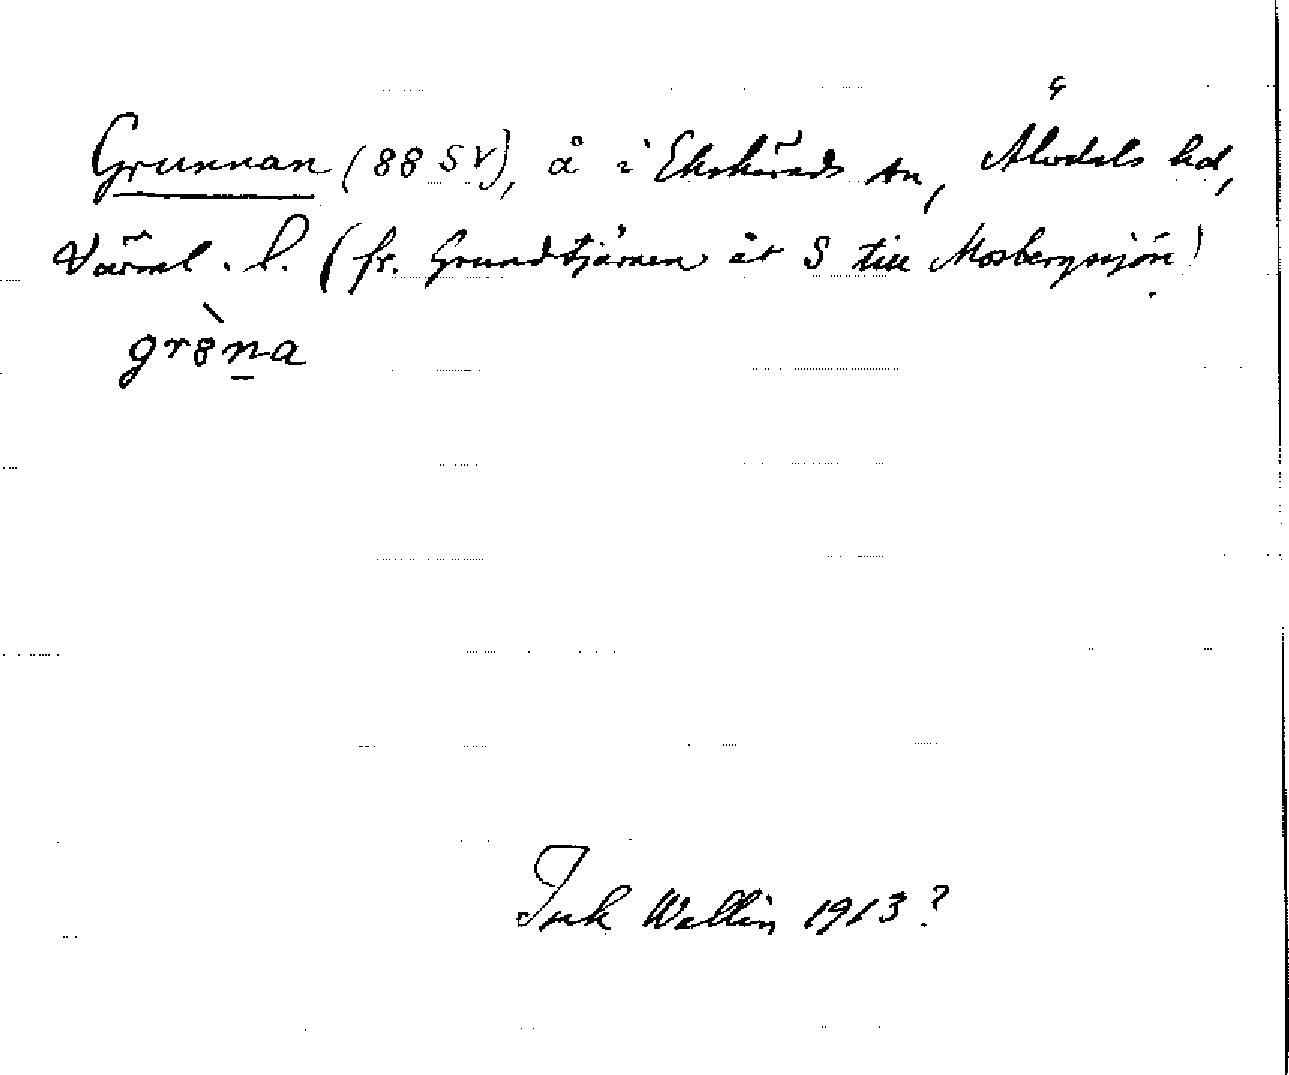 Grunnan (88 SV), å i Ekshärads sn, Älvdals hd,
Värml. l. (fr. Grundtjärnen åt S till Mosbergssjön)
gr8̀n̲a
Tuk Wallin 1913?